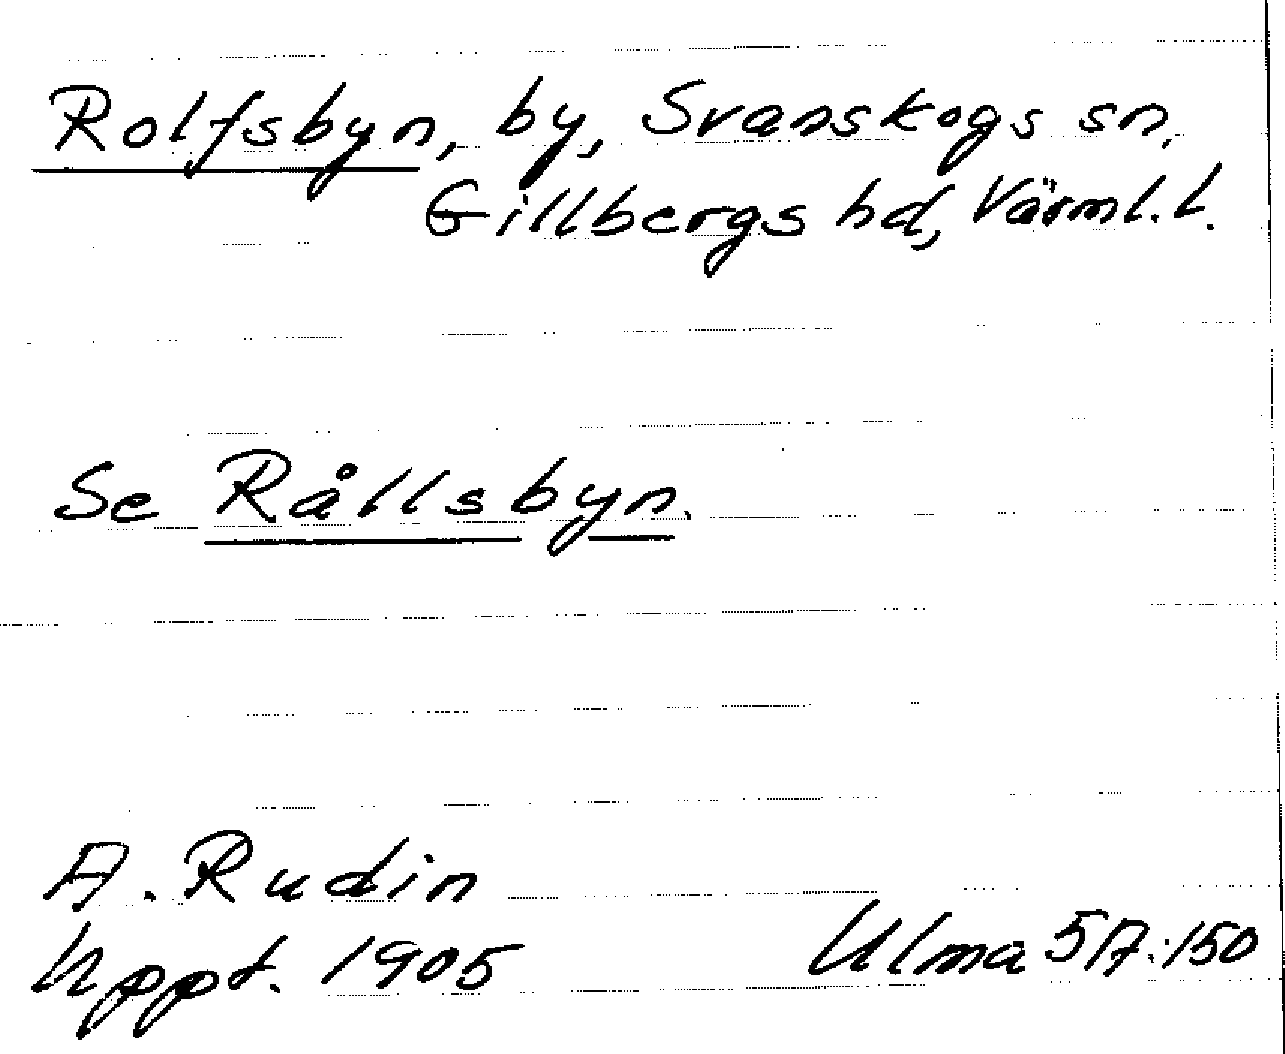 Rolfsbyn, by, Svanskogs sn,
Gillbergs hd, Värml. l.
Se Rållsbyn.
A. Rudin
Uppt. 1905
Ulma 517:150